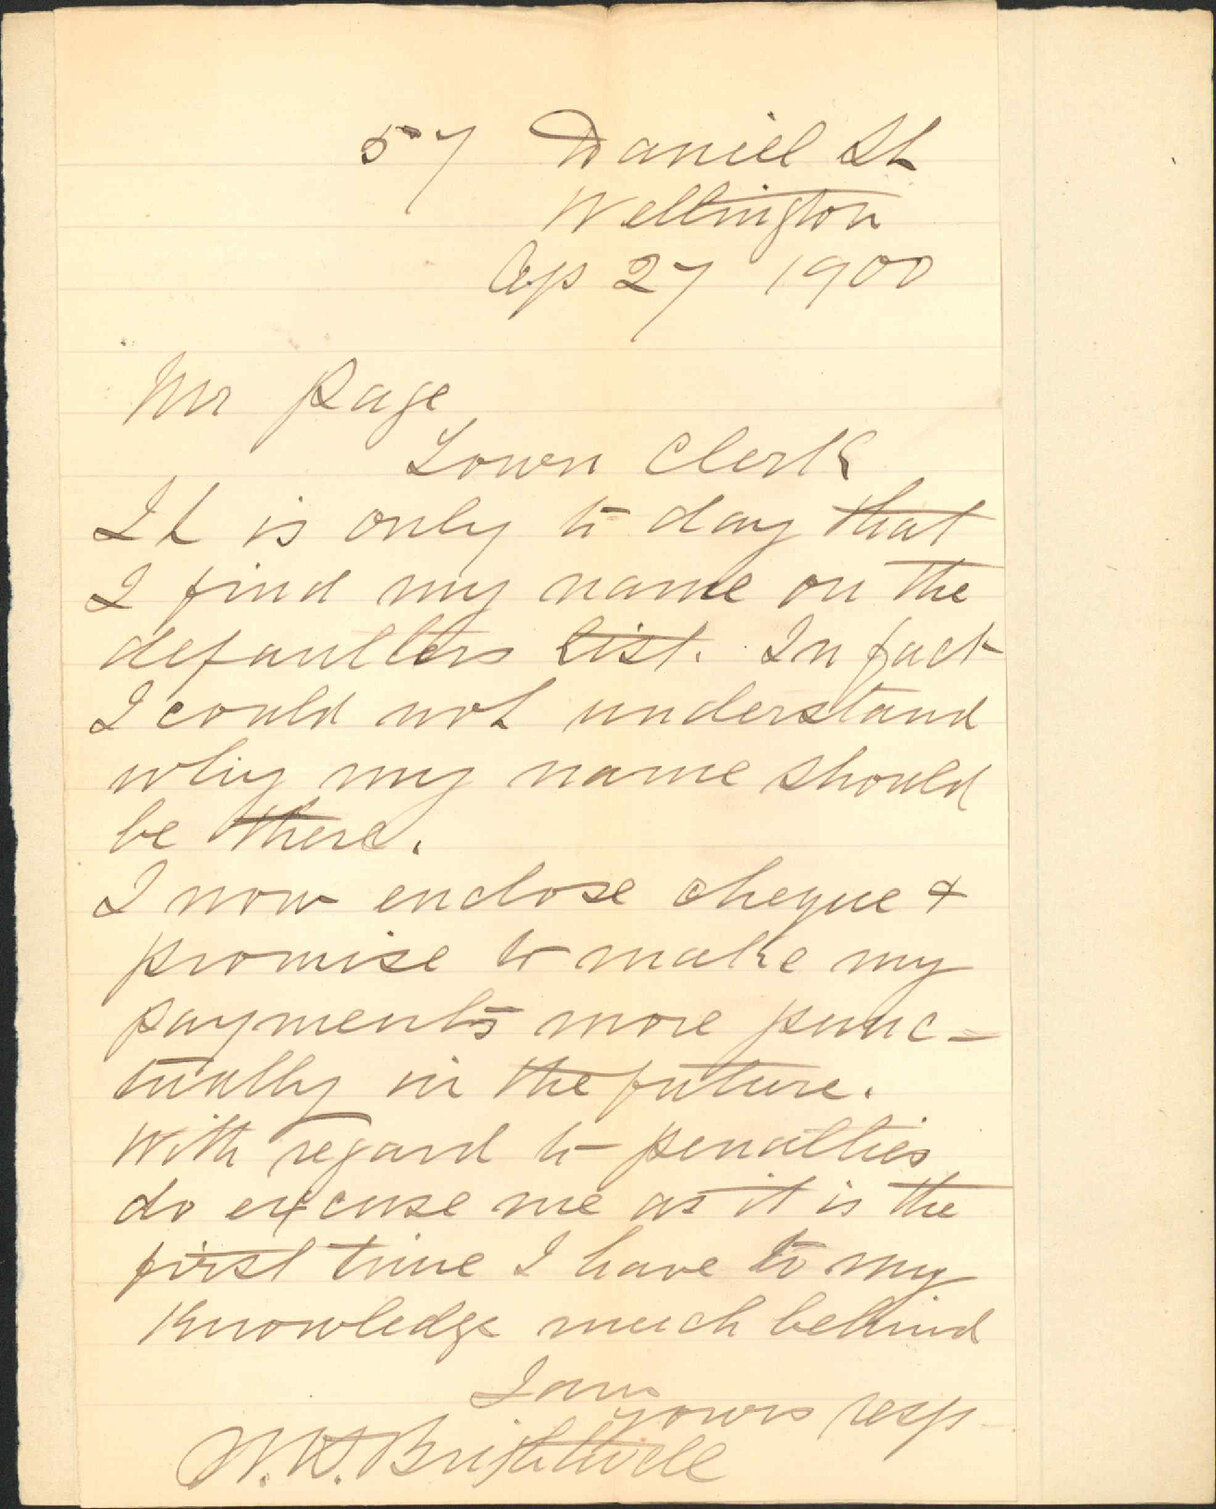 57 Daniel St
Wellington
Ap 27 1900
Mr Page
Town Clerk
It is only to day that
I find my name on the
defaulters list. In fact
I could not understand
why my name should
be there.
I now enclose cheque &
promise to make my
payments more punc=
tually in the future.
With regard to penalties
do excuse me as it is the
first time I have to my
knowledge much behind
I am
yours resp
W. H. Brightwell